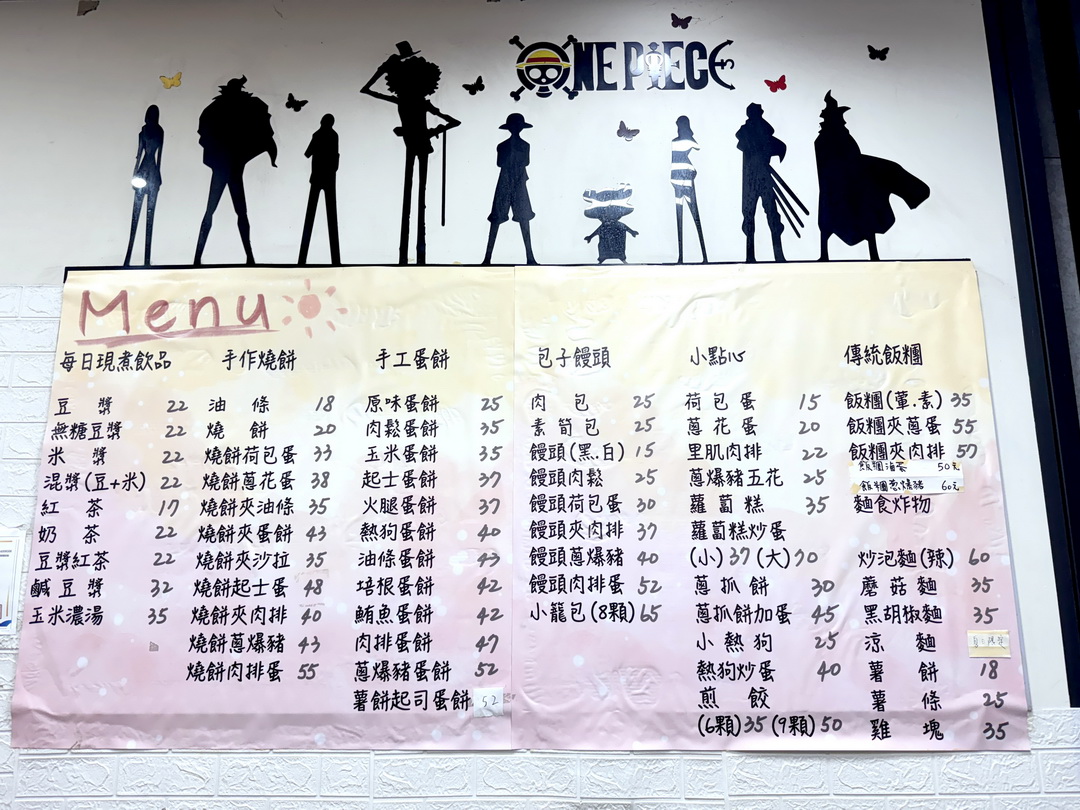 ONE PIECE
Menu
每日現煮飲品
豆漿 22
無糖豆漿 22
米漿 22
混漿(豆+米) 22
紅茶 17
奶茶 22
豆漿紅茶 22
鹹豆漿 32
玉米濃湯 35
手作燒餅
油條 18
燒餅 20
燒餅荷包蛋 33
燒餅蔥花蛋 38
燒餅夾油條 35
燒餅夾蛋餅 43
燒餅夾沙拉 35
燒餅起士蛋 48
燒餅夾肉排 40
燒餅蔥爆豬 43
燒餅肉排蛋 55
手工蛋餅
原味蛋餅 25
肉鬆蛋餅 35
玉米蛋餅 35
起士蛋餅 37
火腿蛋餅 37
熱狗蛋餅 40
油條蛋餅 43
培根蛋餅 42
鮪魚蛋餅 42
肉排蛋餅 47
蔥爆豬蛋餅 52
薯餅起司蛋餅 52
包子饅頭
肉包 25
素筍包 25
饅頭(黑.白) 15
饅頭肉鬆 25
饅頭荷包蛋 30
饅頭夾肉排 37
饅頭蔥爆豬 40
饅頭肉排蛋 52
小籠包(8顆) 65
小點心
荷包蛋 15
蔥花蛋 20
里肌肉排 22
蔥爆豬五花 25
蘿蔔糕 35
蘿蔔糕炒蛋
(小)37(大)70
蔥抓餅 30
蔥抓餅加蛋 45
小熱狗 25
熱狗炒蛋 40
煎餃
(6顆)35(9顆)50
傳統飯糰
飯糰(葷.素) 35
飯糰夾蔥蛋 55
飯糰夾肉排 57
飯糰海苔 50元
飯糰蔥爆豬 60元
麵食炸物
炒泡麵(辣) 60
蘑菇麵 35
黑胡椒麵 35
涼麵
薯餅 18
薯條 25
雞塊 35